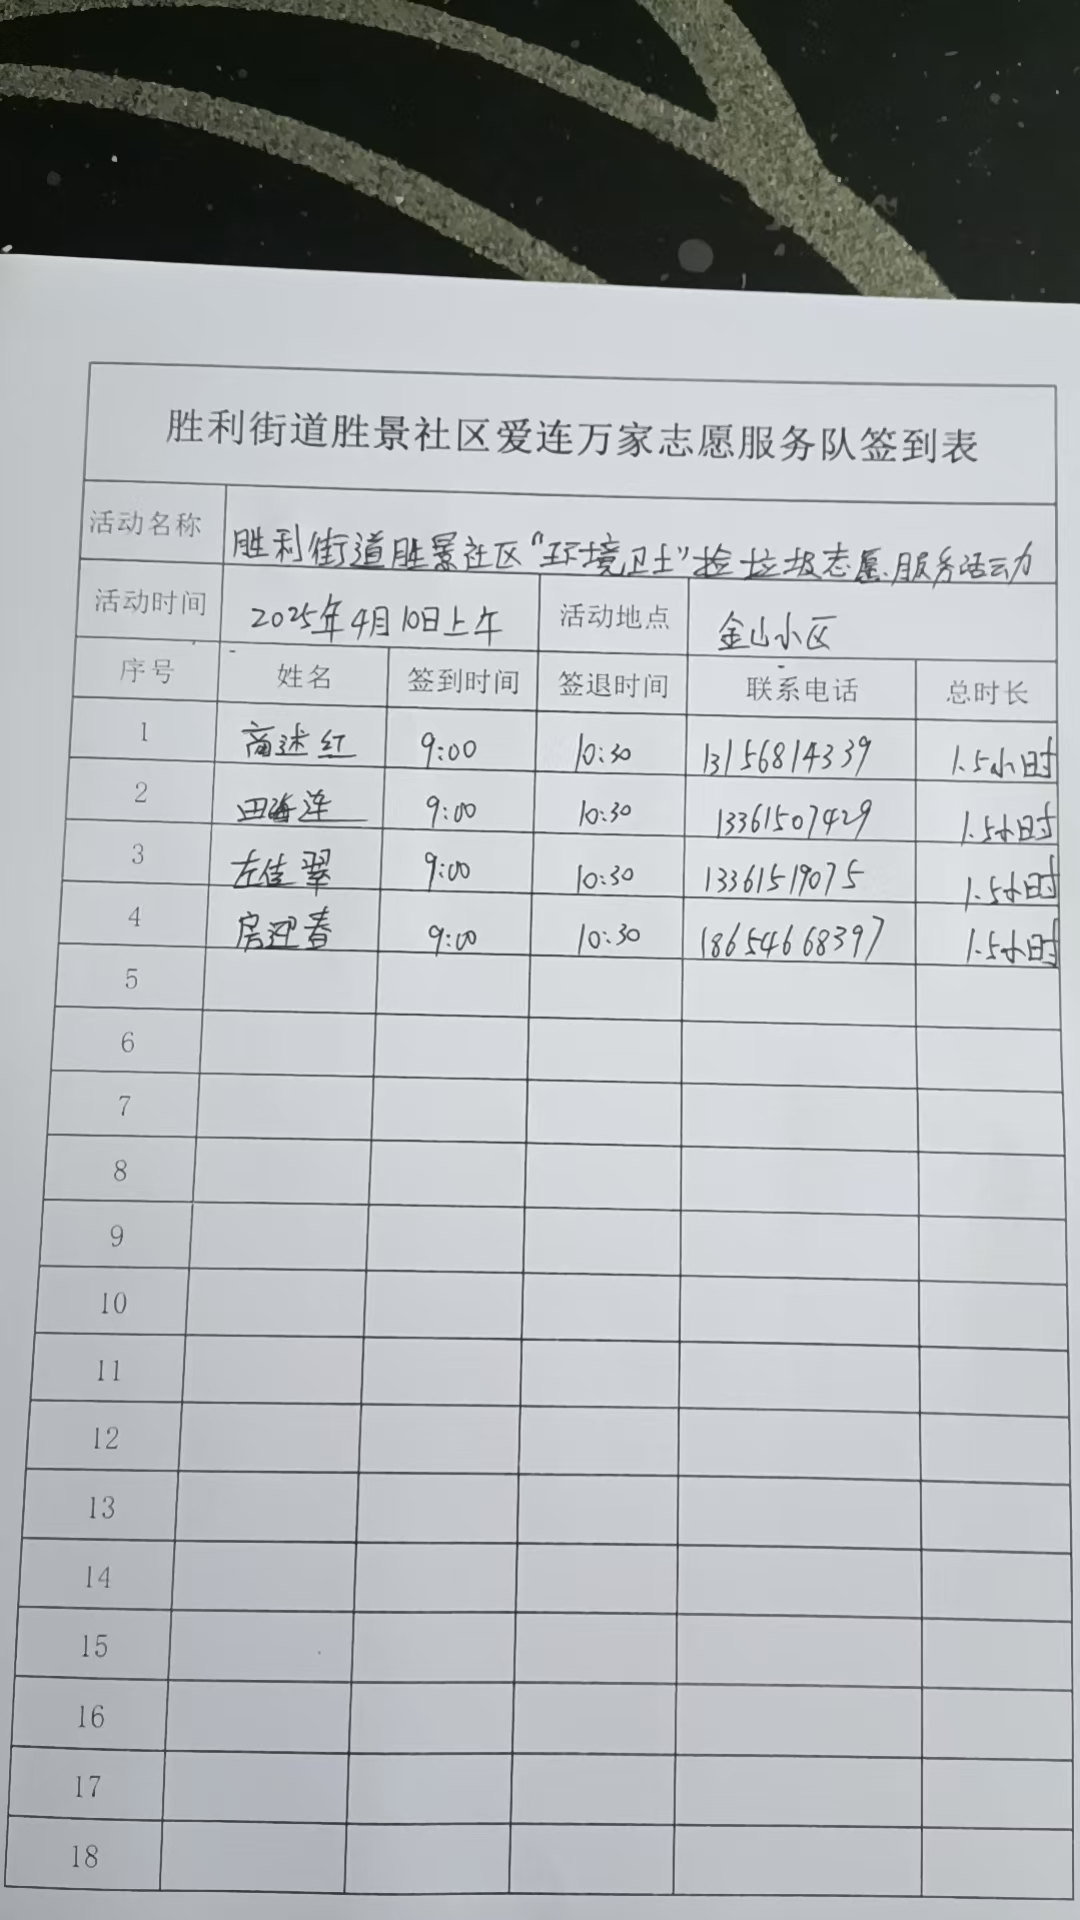 胜利街道胜景社区爱连万家志愿服务队签到表
活动名称 胜利街道胜景社区“环境卫士”捡垃圾志愿服务活动
活动时间 2025年4月10日上午 活动地点 金山小区
序号 姓名 签到时间 签退时间 联系电话 总时长
1 商述红 9:00 10:30 13156814339 1.5小时
2 田海莲 9:00 10:30 13361507429 1.5小时
3 左佳翠 9:00 10:30 13361519075 1.5小时
4 房迎春 9:00 10:30 18654668397 1.5小时
5
6
7
8
9
10
11
12
13
14
15
16
17
18